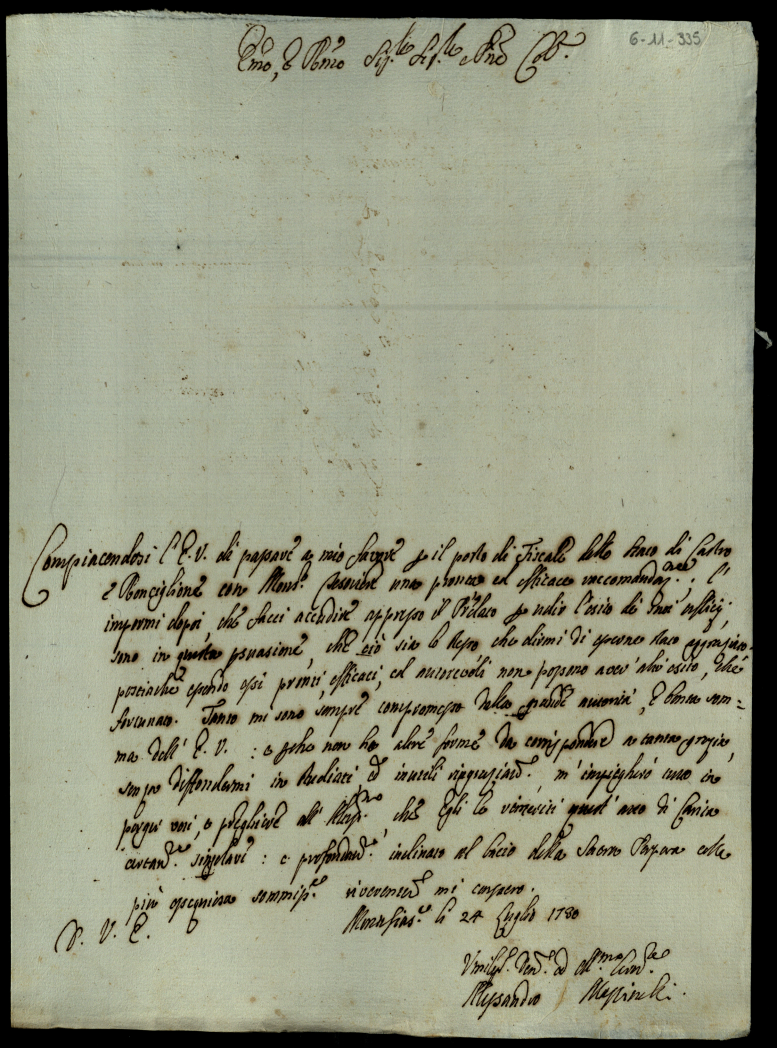 6-11-335
Emo, e Rmo Sig.re Sig.re Pne Col.
Compiacendosi l'E. V. di passare a mio favore il posto di Fiscale dello Stato di Castro
e Ronciglione con Mons. una pronta ed efficace raccomandaz.ne; l'
impormi dopoi, che facci accudire appresso il Prelato udir l'esito di suoi ufficij;
sono in questa psuasione, che ciò sia lo stesso che dirmi di esserne stato aggraziato
posciachè essendo essi pronti, efficaci, ed autorevoli non possono aver' altr' esito, che
fortunato. Tanto mi sono sempre compromesso dalla grande autorità, e bontà som=
ma dell' E. V. : e pche non ho altre forme da corrispondere a tanta grazia,
senza diffondermi in studiati ed inutili ringraziam.ti m' impiegherò
porger voti, e preghiere all' che Egli le retribuisci quest' atto di Carità
singolare : e profondam.te inclinato al bacio della Sacra Porpora colla
più ossequiosa sommiss.e riverentem.e mi confermo.
D. V. E.
li 24 Luglio 1780
Umiliss. Dev. ed obb.mo Serv.re
Alessandro